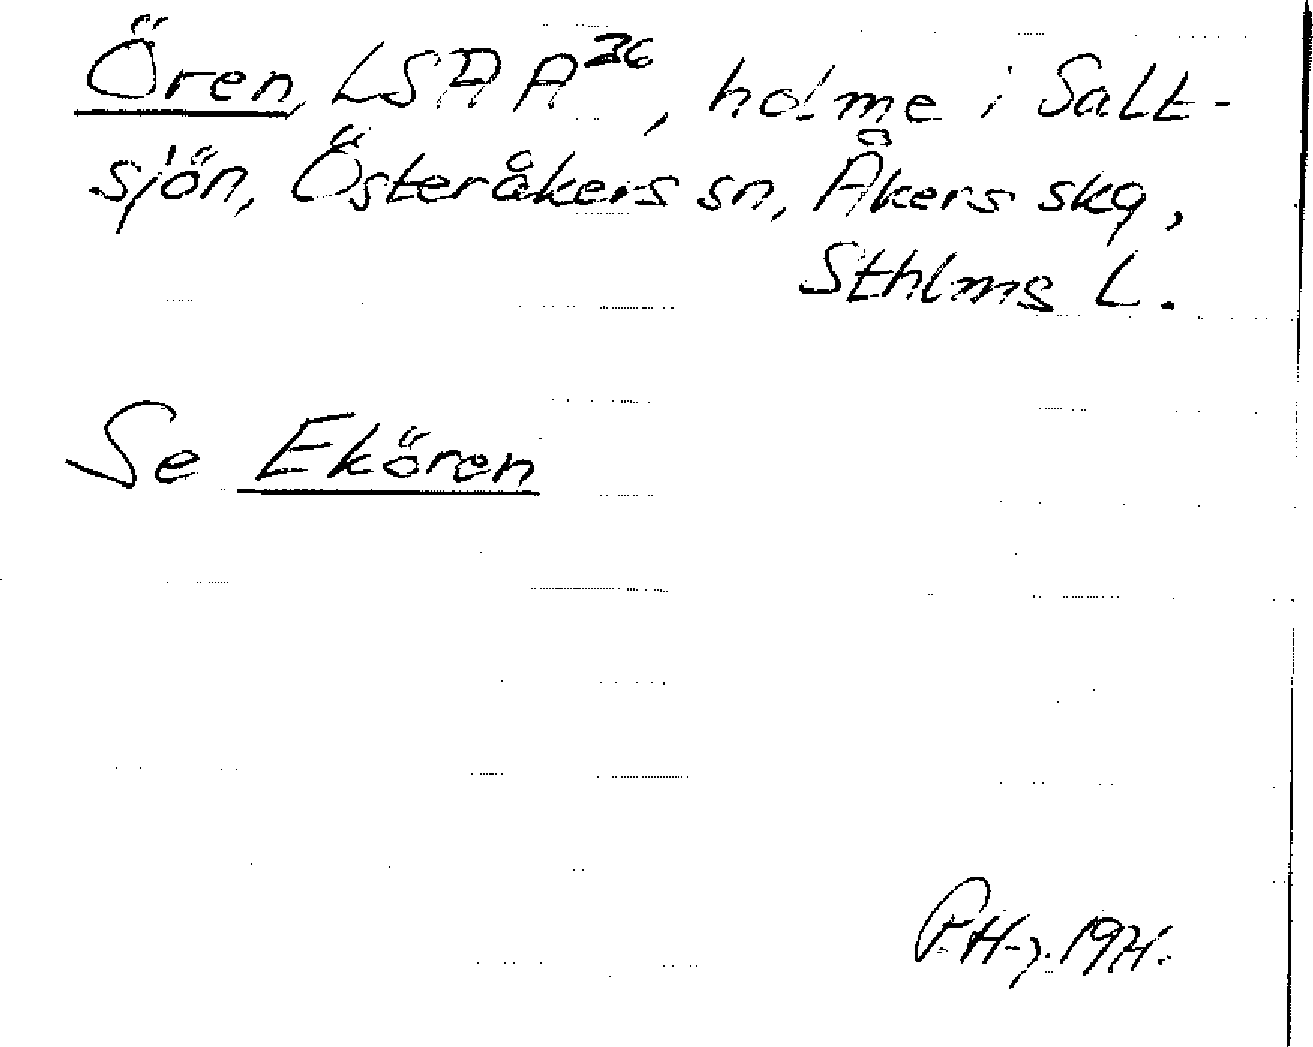 Ören, LSA A36, holme i Salt-
sjön, Österåkers sn, Åkers skg,
Sthlms L.
Se Ekören
1971.